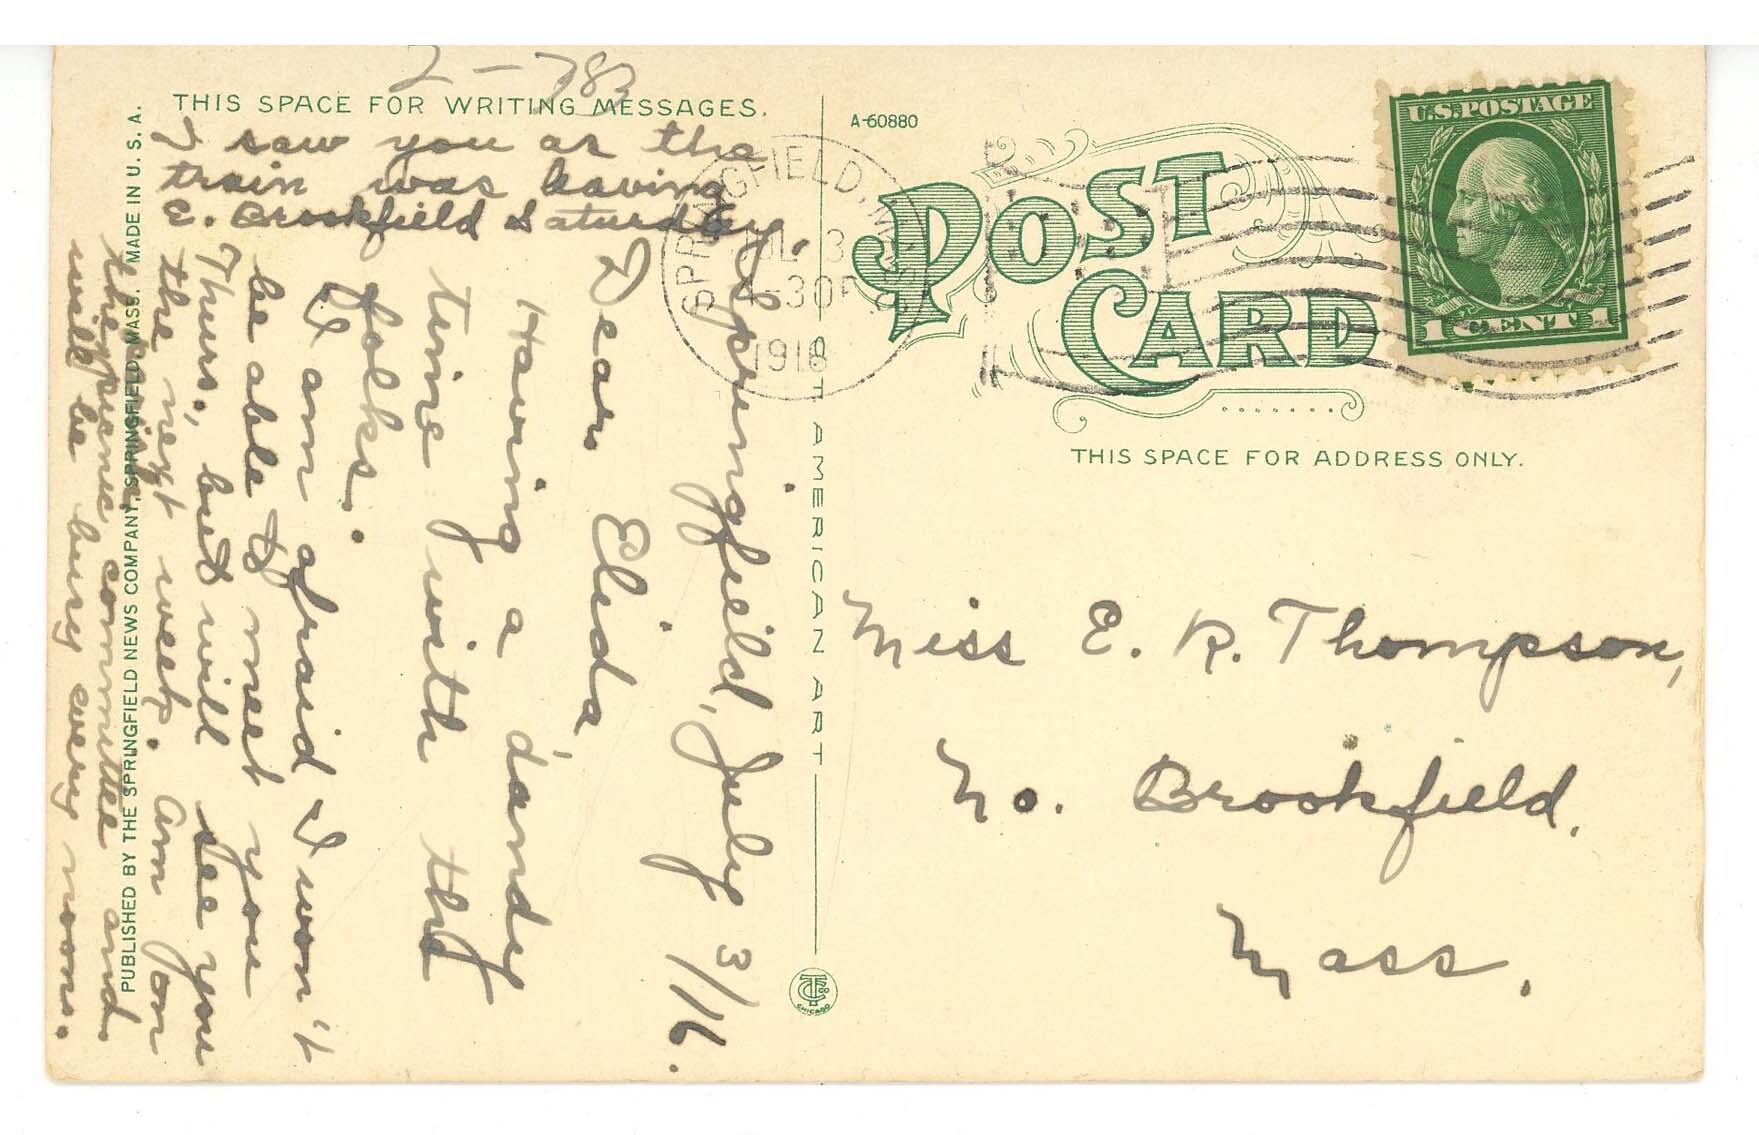 2-783
THIS SPACE FOR WRITING MESSAGES.
I saw you as the
train was leaving
E. Brookfield Saturday.
Springfield, July 3/16.
Dear Elida,
Having a dandy
time with the
folks.
I am afraid I won't
be able to meet you
Thurs., but will see you
the next week. Am on
the picnic committee and
will be busy every noon.
PUBLISHED BY THE SPRINGFIELD NEWS COMPANY, SPRINGFIELD, MASS. MADE IN U. S. A.
AMERICAN ART
CHICAGO
A-60880
POST
CARD
SPRINGFIELD, M
JUL 3
-30P
1916
U.S. POSTAGE
1 CENT 1
THIS SPACE FOR ADDRESS ONLY.
Miss E. R. Thompson,
No. Brookfield.
Mass.